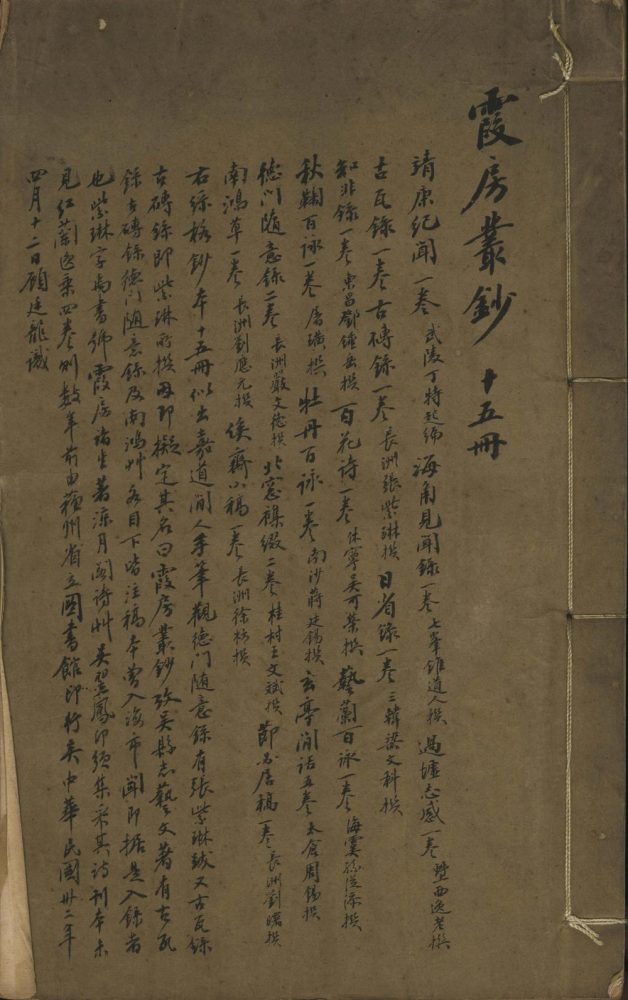 霞房叢鈔 十五冊
靖康紀聞一卷 武陵丁特起編 海角見聞錄一卷 七峯樵道人撰 過墟志感一卷 墅西逸叟撰
古瓦錄一卷 古磚錄一卷 長洲張紫琳撰 日省錄一卷 三韓梁文科撰
知非錄一卷 東昌鄧鍾岳撰 百花詩一卷 休寧吳可葉撰 藝蘭百詠一卷 海虞孫從添撰
秋鞠百詠一卷 屠璜撰 牡丹百詠一卷 南沙蔣廷錫撰 玄亭閒話五卷 太倉周錫撰
德門隨意錄二卷 長洲嚴文德撰 北窓襍綴二卷 桂村王文斌撰 節必居稿一卷 長洲劉曙撰
南鴻草一卷 長洲劉應元撰 俟齋小稿一卷 長洲徐枋撰
右綠格鈔本十五冊似出嘉道間人手筆觀德門隨意錄有張紫琳跋又古瓦錄
古磚錄即紫琳所撰毋即擬定其名曰霞房叢鈔攷吳縣志藝文著有古瓦
錄古磚錄德門隨意錄及南鴻艸各目下皆注稿本曾入滬市聞即據是入錄者
也紫琳字尚書號霞房諸生著深月閣詩艸吳翌鳳印須集采其詩刊本未
見紅蘭逸乘四卷則數年前由蘇州省立圖書館印行矣中華民國卅二年
四月十二日顧廷龍識